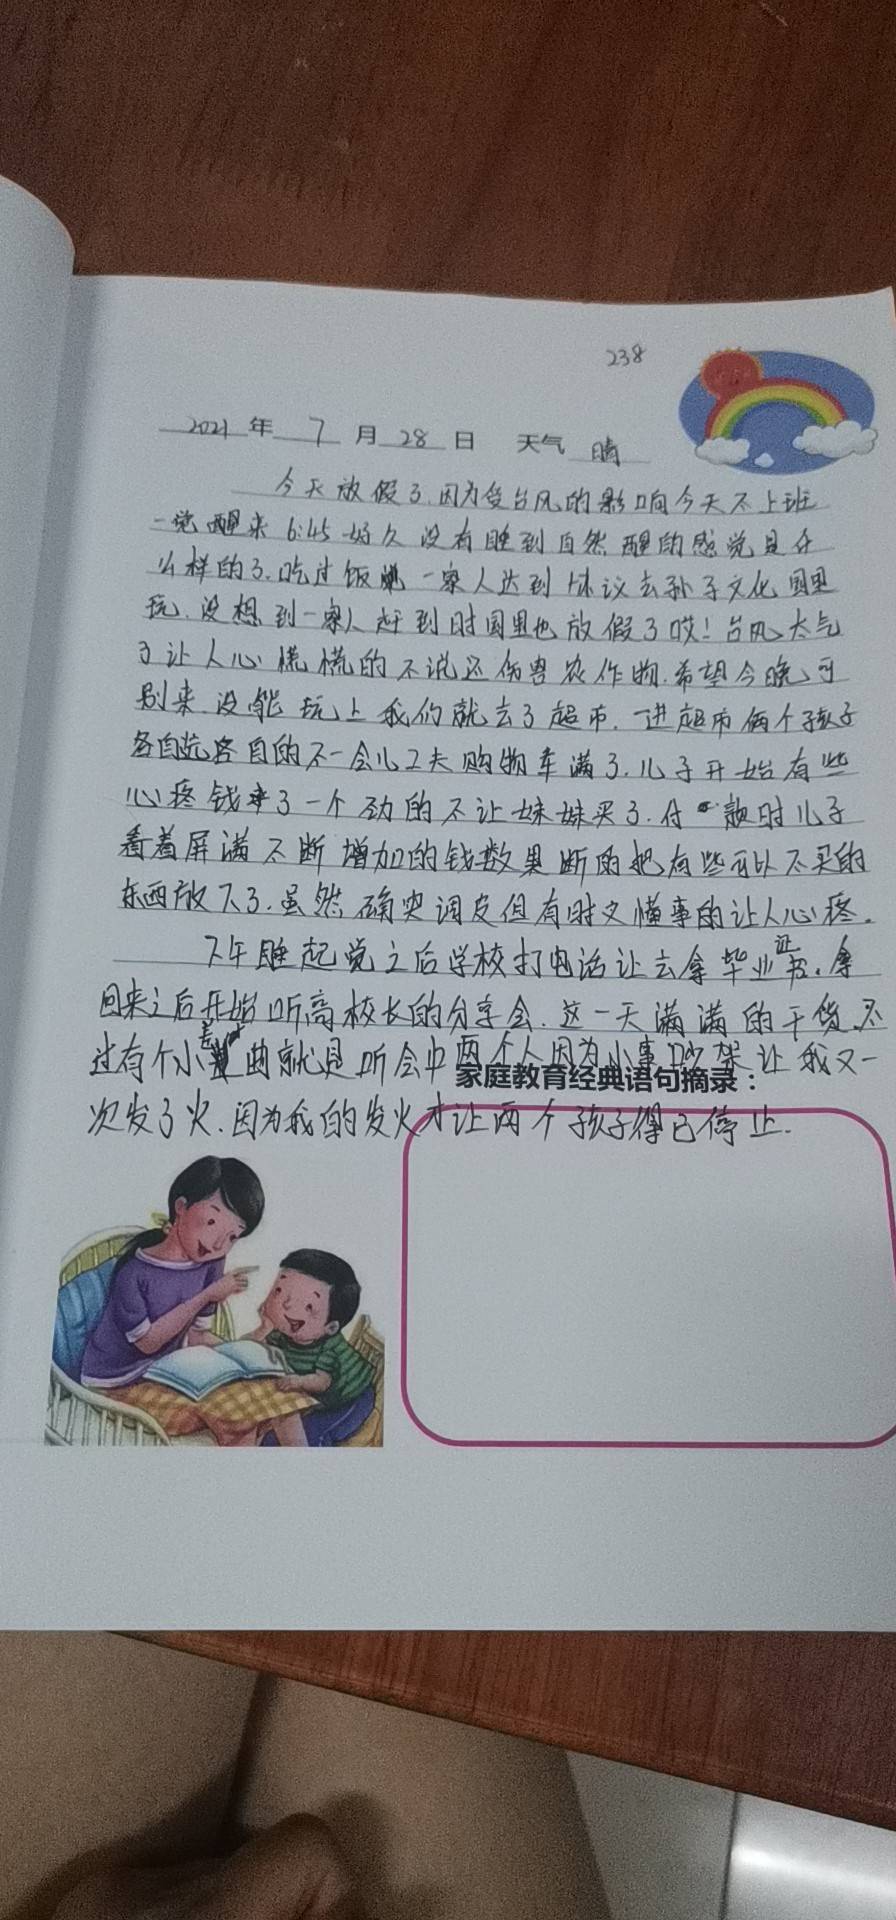 238
2021年7月28日 天气 晴
今天放假了.因为受台风的影响今天不上班
一觉醒来6:45好久没有睡到自然醒的感觉是什
么样的了.吃过饭 一家人达到协议去孙子文化园里
玩.没想到一家人赶到时园里也放假了哎!台风天气
了让人心慌慌的不说还伤害农作物.希望今晚可
别来.没能玩上我们就去了超市.一进超市俩个孩子
各自玩各自的不一会儿工夫购物车满了.儿子开始有些
心疼钱了一个劲的不让妹妹买了.付款时儿子
看着屏满不断增加的钱数果断的把有些可以不买的
东西放下了.虽然确实调皮但有时又懂事的让人心疼。
下午睡起觉之后学校打电话让去拿毕业证书.拿
回来之后开始听高校长的分享会.这一天满满的干货.不
过有个小差曲就是听会中两个人因为小事吵架让我又一
家庭教育经典语句摘录：
次发了火.因为我的发火才让两个孩子得已停止.